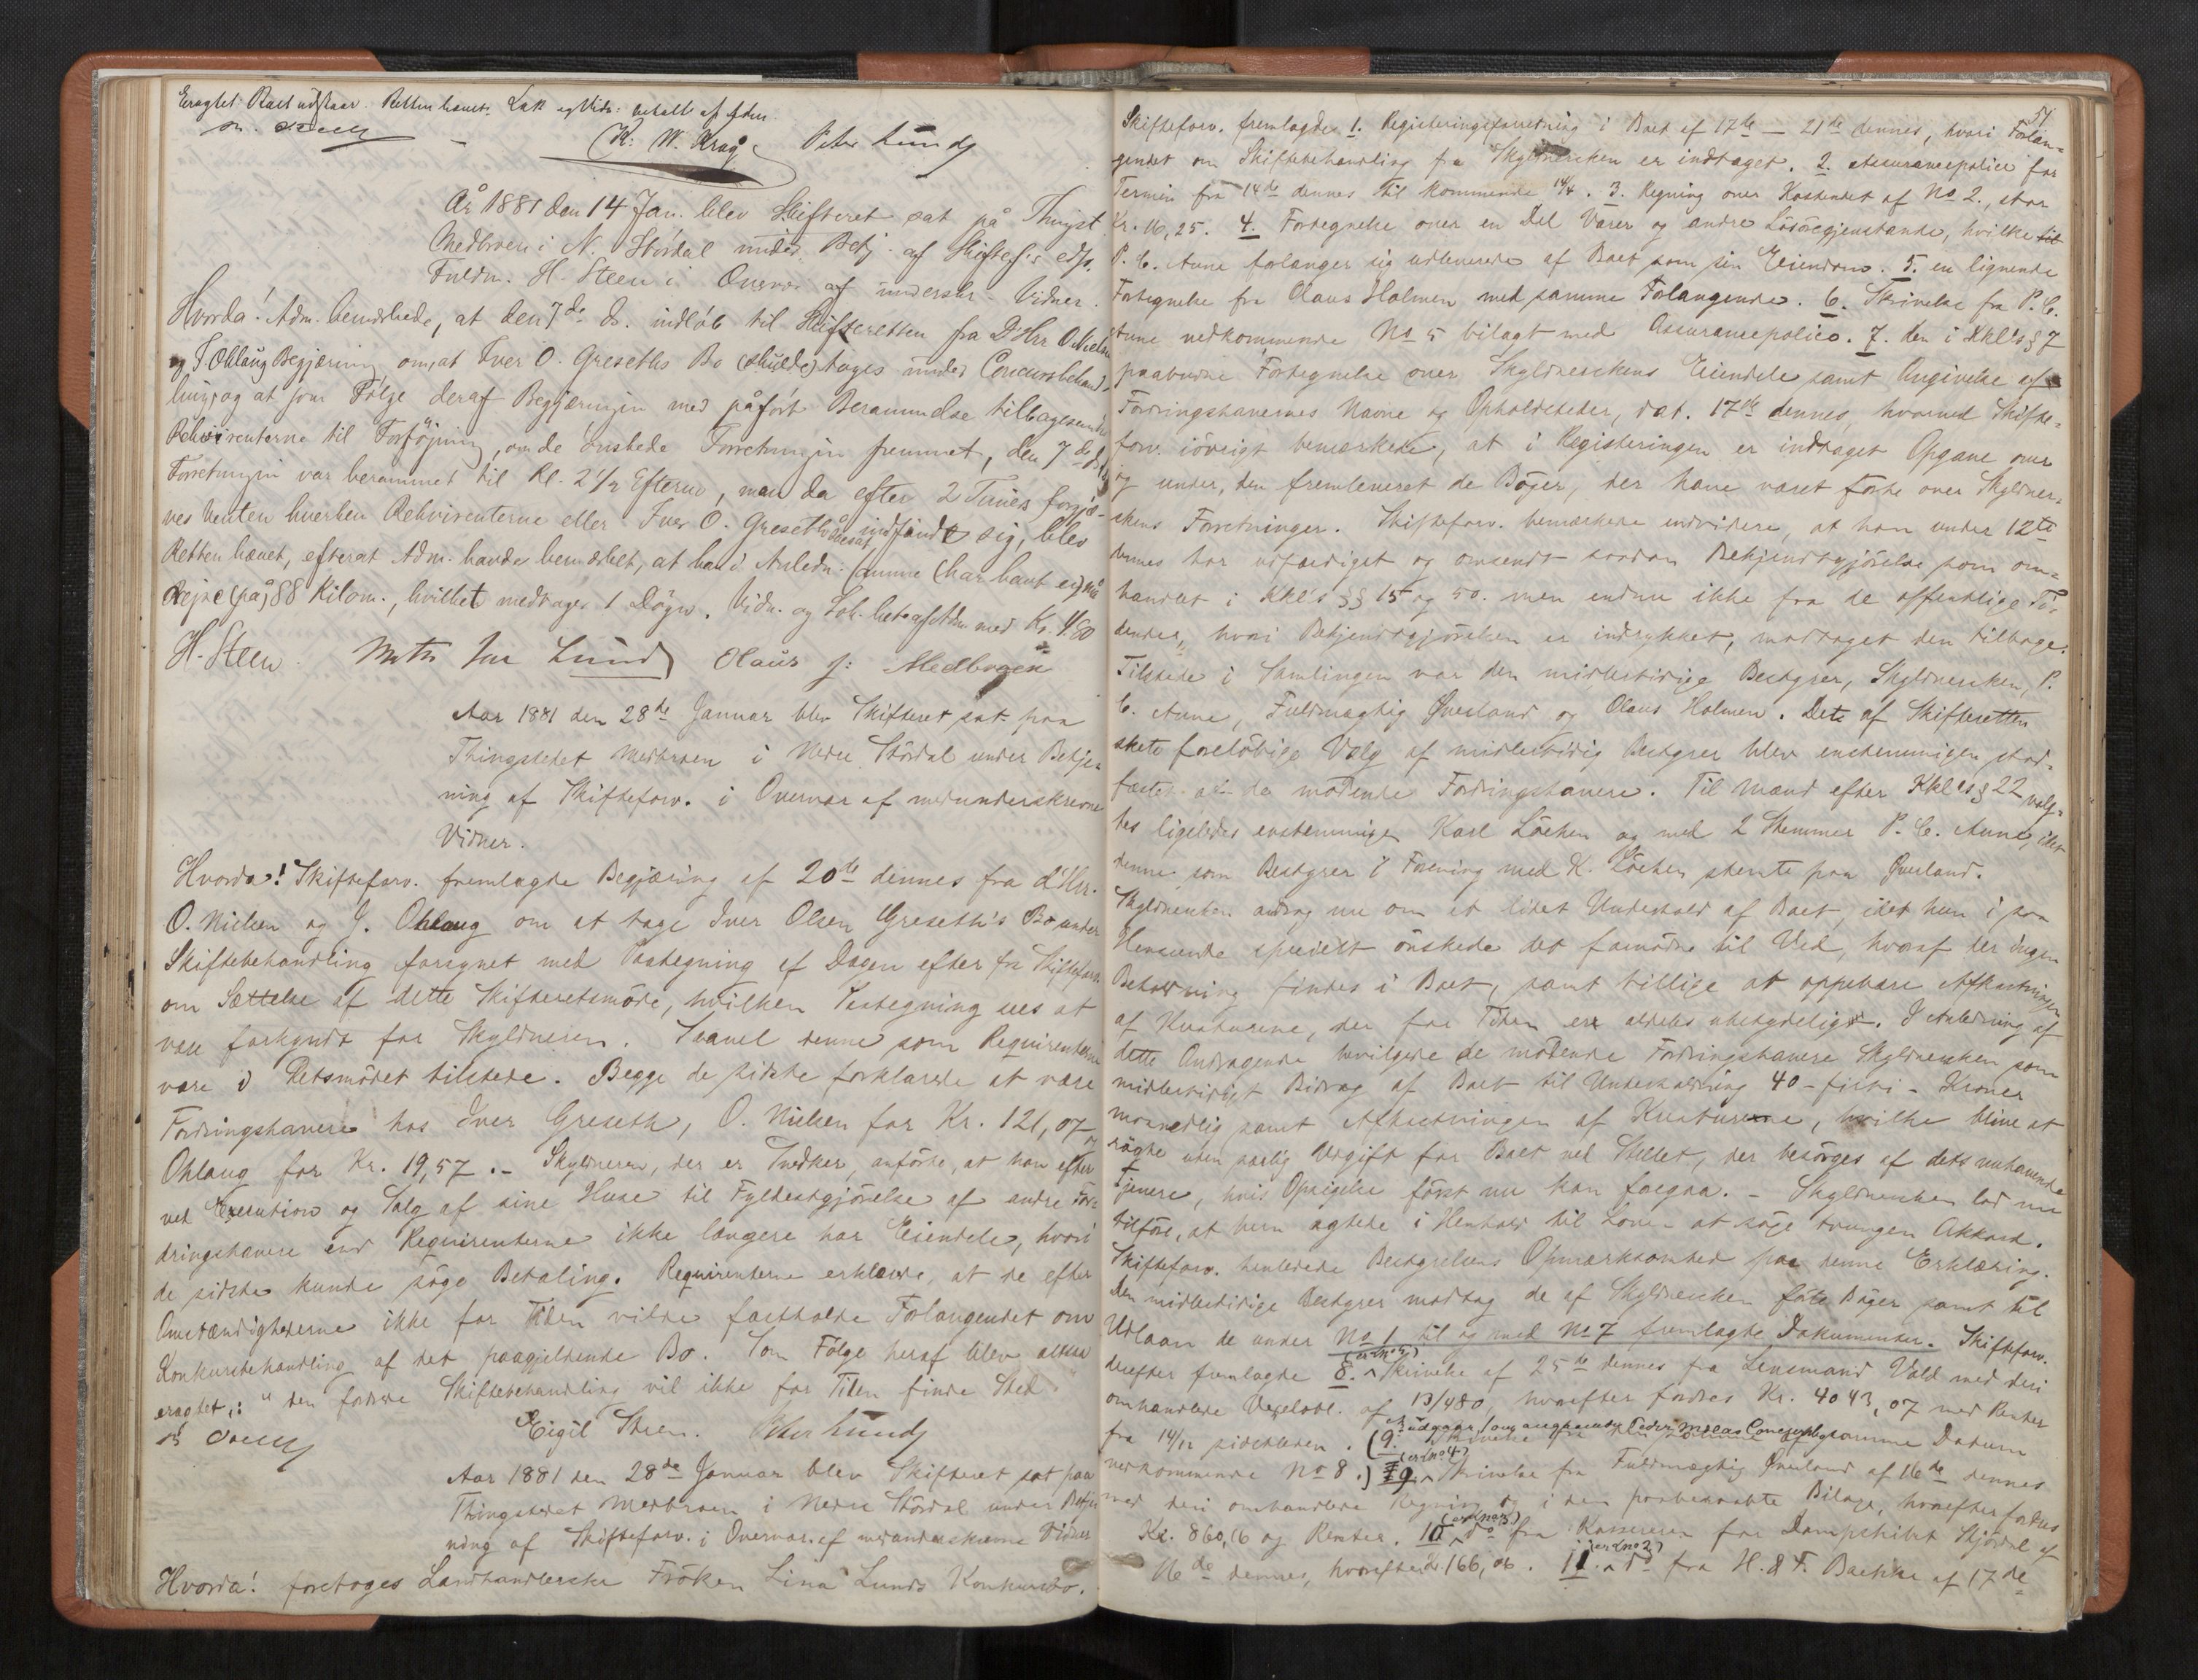 Eragtet: Boet udstaar. Retten hævet. Lak og Vidn: betalt af Adm.
K. W. Krag Peter Lund
År 1881 den 14 Jan. blev Skifteret sat på Thingst.
Medbroen i N. Stördal under Betj. af Skiftef's edsv.
Fuldm. H. Steen i Overvær af underskr. Vidner.
Hvorda! Adm. bemærkede, at den 7de ds. indløb til Skifteretten fra D'Hrr O. Nielsen
og J. Ohlaug Begjæring om, at Iver O. Greseths Bo (skulde) tages under Concursbehand-
ling, og at som Følge deraf Begjæringen med påført Berammelse tilbagesendtes
Rekvirenterne til Forföjning, om de ønskede Forretningen fremmet, den 7de ds.
Forretningen var berammet til Kl. 2 1/2 Efterm, men da efter 2 Timers forgjæ-
ves Venten hverken Rekvirenterne eller Iver O. Greseth indfandt sig, blev
Retten hævet, efterat Adm. havde bemærket, at han i Anledn: samme (har havt en)
Rejse (på) 88 Kilom., hvilket medtager 1 Døgn. Vidn. og Lok. bet. af Adm. med Kr. 4.80
H. Steen. Lund Olaus J: Medbroen
Aar 1881 den 28de Januar blev Skifteret sat paa
Thingstedet Medbroen i Nedre Stördal under Betje-
ning af Skifteforv. i Overvær af medunderskrevne
Vidner.
Hvorda! Skifteforv. fremlagde Begjæring af 20de dennes fra d'Hrr.
O. Nielsen og J. Ohlaug om at tage Iver Olsen Greseth's Bo under
Skiftebehandling forsynet med Paategning af Dagen efter fra Skifteforv.
om Sættelse af dette Skifteretsmöde, hvilken Paategning sees at
være forkyndt for Skyldneren. Saavel denne som Requirenterne
vare i Retsmödet tilstede. Begge de sidste forklarede at være
Fordringshavere hos Iver Greseth, O. Nielsen for Kr. 121,07 og
Ohlaug for Kr. 19,57. – Skyldneren, der er Snedker, anförte, at han efter
ved Execution og Salg af sine Huse til Fyldestgjörelse af andre For-
dringshavere end Requirenterne ikke længere har Eiendele, hvori
de sidste kunde söge Betaling. Requirenterne erklærede, at de efter
Omstændighederne ikke for Tiden vilde fastholde Forlangendet om
Konkursbehandling af det paagjældende Bo. Som Fölge heraf blev altsaa
eragtet,: "den fordrede Skiftebehandling vil ikke for Tiden finde Sted."
Eigil Steen. Peter Lund
Aar 1881 den 28de Januar blev Skifteret sat paa
Thingstedet Medbroen i Nedre Stördal under Betje-
ning af Skifteforv. i Overvær af medunderskrevne Vidner
Hvorda! foretoges Landhandlerske Fröken Lina Lunds Konkursbo.
51
Skifteforv. fremlagde 1. Registeringsforretning i Boet af 17de – 21de dennes, hvori Forlan-
gendet om Skiftebehandling fra Skyldnersken er indtaget. 2. Assurancepolice for
Termin fra 14de dennes til kommende 14/4. 3. Regning over Kostendet af No 2., stor
Kr. 16,25. 4. Fortegnelse over en Del Varer og andre Lösöregjenstande, hvilke
P. C. Aune forlanger sig udleverede af Boet som sin Eiendom. 5. en lignende
Fortegnelse fra Olaus Holmen med samme Forlangende. 6. Skrivelse fra P. C.
Aune vedkommende No 5 bilagt med Assurancepolice. 7. den i Kkl's § 7
paabudne Fortegnelse over Skyldnerskens Eiendele samt Angivelse af
Fordringshavernes Navne og Opholdssteder, dat. 17de dennes, hvorved Skifte-
forv. iövrigt bemærkede, at i Registeringen er indtaget Opgave over
og under, den fremleveret de Böger, der have været förte over Skyldner-
skens Forretninger. Skifteforv. bemærkede endvidere, at han under 12te
dennes har udfærdiget og omsendt saadan Bekjendtgjörelse som om-
handlet i Kkl's §§ 15 og 50. men endnu ikke fra de offentlige Ti-
dender, hvori Bekjendtgjörelsen er indrykket, modtaget den tilbage.
Tilstede i Samlingen var den midlertidige Bestyrer, Skyldnersken, P.
C. Aune, Fuldmægtig Överland og Olaus Holmen. Det af Skifteretten
skete foreløbige Valg af midlertidig Bestyrer blev enstemmigen stad-
fæstet af de mödende Fordringshavere. Til Mænd efter Kkl's § 22 valg-
tes ligeledes enstemmigen Karl Löchen og med 2 Stemmer P. C. Aune, idet
denne som Bestyrer i Forening med K. Löchen stemte paa Överland.
Skyldnersken androg nu om et lidet Underhold af Boet, idet hun i saa
Henseende specielt önskede det fornödne til Ved, hvoraf der ingen
Beholdning findes i Boet, samt tillige at oppebære Afkastningen
af Kreaturene, der for Tiden er aldeles ubetydelig. I Anledning af
dette Andragende bevilgede de mödende Fordringshavere Skyldnersken som
midlertidigt Bidrag af Boet til Underholdning 40 - firti - Kroner
maanedlig samt Afkastningen af Kreaturene, hvilke blive at
rögte uden særlig Udgift for Boet ved Stellet, der besörges af dets nuhavende
Tjenere, hvis Opsigelse först nu kan foregaa. – Skyldnersken lod nu
tilföre, at hun agtede i Henhold til Loven at söge tvungen Akkord.
Skifteforv. henledede Bestyrelsens Opmærksomhed paa denne Erklæring.
Den midlertidige Bestyrer modtog de af Skyldnersken förte Böger samt til
Udlaan de under No 1 til og med No 7 fremlagte Dokumenter. Skifteforv.
derefter fremlagde 8. Skrivelse af 25de dennes fra Lensmand Vold med deri
omhandlede Vexelobl. af 13/4 80, hvorefter fordres Kr. 4043,07 med Renter
fra 14/12 sidstleden. (9. Skrivelse fra samme Datum
vedkommende No 8.) 9. (er No 4) Skrivelse fra Fuldmægtig Överland af 16de dennes
med deri omhandlede Regning og i den paaberaabte Bilage, hvorefter fordres
Kr. 860,16 og Renter. 10. do fra Kassereren for Dampskibet Stjördal af
16de dennes, hvorefter Kr. 166,06. 11. (er No 2) do fra H. & F. Bachke af 17de